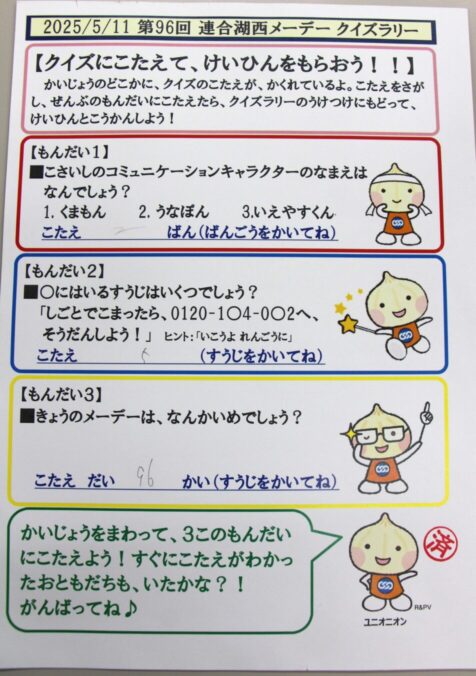 2025/5/11 第96回 連合湖西メーデー クイズラリー
【クイズにこたえて、けいひんをもらおう！！】
かいじょうのどこかに、クイズのこたえが、かくれているよ。こたえをさが
し、ぜんぶのもんだいにこたえたら、クイズラリーのうけつけにもどって、
けいひんとこうかんしよう！
【もんだい１】
■こさいしのコミュニケーションキャラクターのなまえは
なんでしょう？
1.くまもん　2.うなぽん　3.いえやすくん
こたえ　2　ばん(ばんごうをかいてね)
【もんだい２】
■〇にはいるすうじはいくつでしょう？
「しごとでこまったら、0120-1〇4-0〇2へ、
そうだんしよう！」 ヒント：「いこうよ れんごうに」
こたえ　5　(すうじをかいてね)
【もんだい３】
■きょうのメーデーは、なんかいめでしょう？
こたえ だい 96 かい(すうじをかいてね)
かいじょうをまわって、３このもんだい
にこたえよう！すぐにこたえがわかっ
たおともだちも、いたかな？！
がんばってね♪
済
R&PV
ユニオニオン